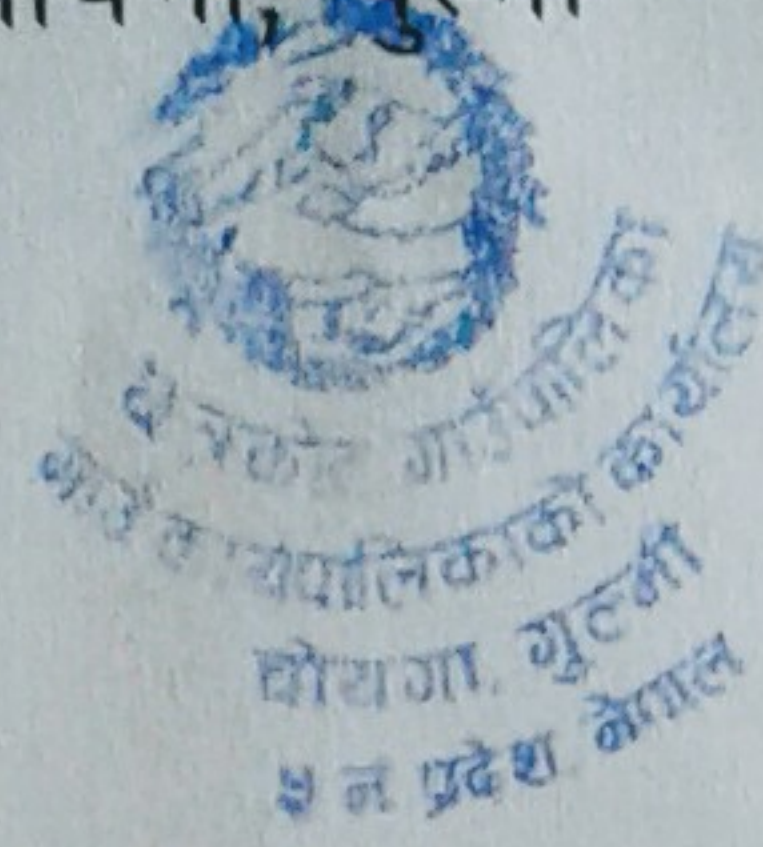 छत्रकोट गाउँपालिका
गाउँ कार्यपालिकाको कार्यालय
गुल्मी
५ नं प्रदेश नेपाल